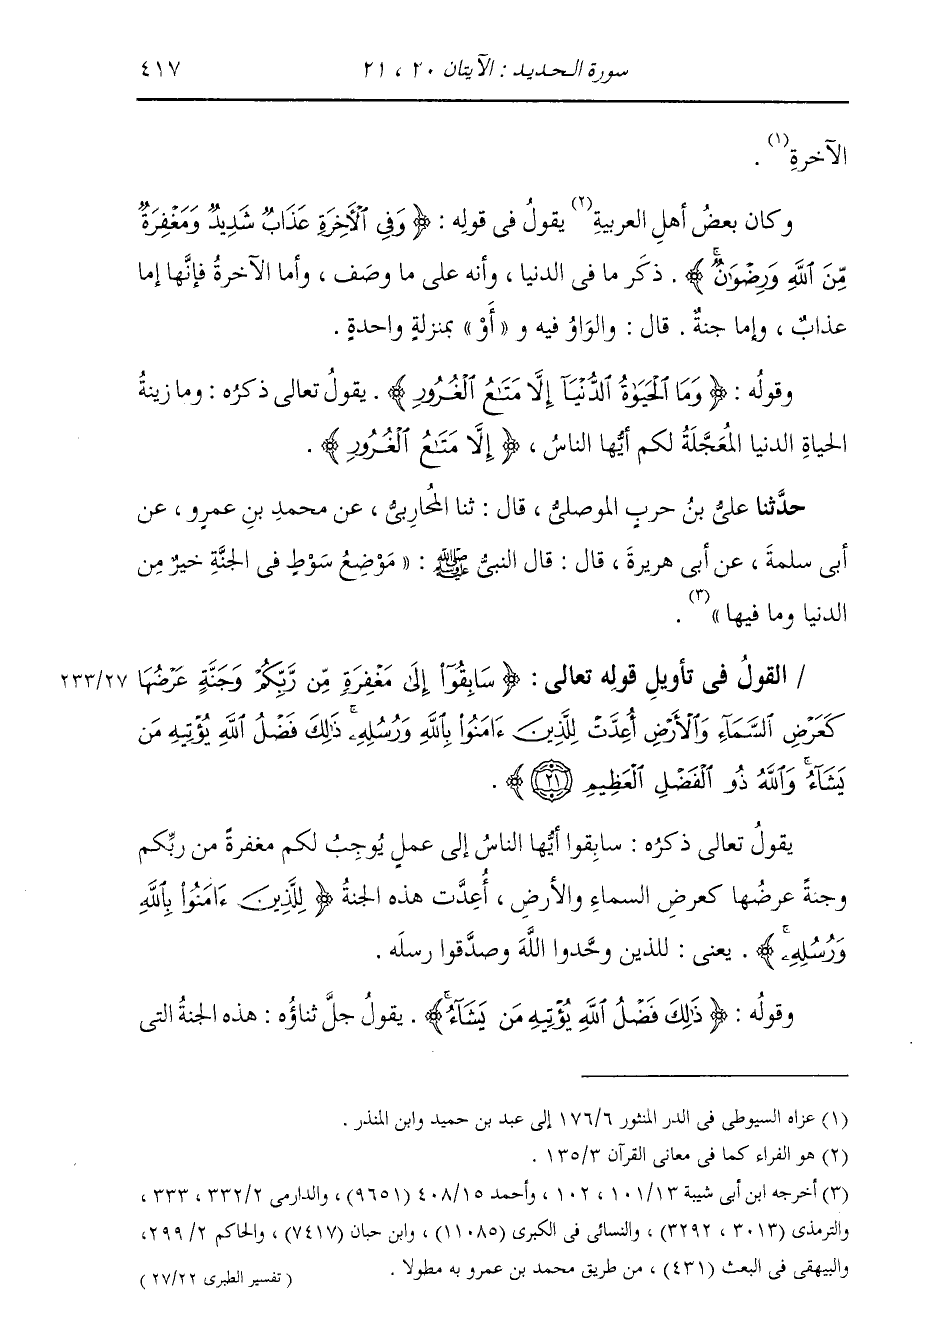 سورة الحديد : الآيتان ٢٠ ، ٢١ ٤١٧
الآخرةِ(١) .
وكان بعضُ أهلِ العربيةِ(٢) يقولُ فى قولِه : ﴿ وَفِى ٱلْأَخِرَةِ عَذَابٌ شَدِيدٌ وَمَغْفِرَةٌ
مِّنَ ٱللَّهِ وَرِضْوَٰنٌ ۚ ﴾ . ذكَر ما فى الدنيا ، وأنه على ما وصَف ، وأما الآخرةُ فإنَّها إما
عذابٌ ، وإما جنةٌ . قال : والوَاوُ فيه و « أَوْ » بمنزلةٍ واحدةٍ .
وقولُه : ﴿ وَمَا ٱلْحَيَوٰةُ ٱلدُّنْيَآ إِلَّا مَتَـٰعُ ٱلْغُرُورِ ﴾ . يقولُ تعالى ذكرُه : وما زينةُ
الحياةِ الدنيا المُعَجَّلَةُ لكم أيُّها الناسُ ، ﴿ إِلَّا مَتَـٰعُ ٱلْغُرُورِ ﴾ .
حدَّثنا علىُّ بنُ حربٍ الموصلىُّ ، قال : ثنا المُحاربىُّ ، عن محمدِ بنِ عمرٍو ، عن
أبى سلمةَ ، عن أبى هريرةَ ، قال : قال النبىُّ ﷺ : « مَوْضِعُ سَوْطٍ فى الجنَّةِ خيرٌ مِن
الدنيا وما فيها »(٣) .
/ القولُ فى تأويلِ قولِه تعالى : ﴿ سَابِقُوٓا۟ إِلَىٰ مَغْفِرَةٍ مِّن رَّبِّكُمْ وَجَنَّةٍ عَرْضُهَا ٢٣٣/٢٧
كَعَرْضِ ٱلسَّمَآءِ وَٱلْأَرْضِ أُعِدَّتْ لِلَّذِينَ ءَامَنُوا۟ بِٱللَّهِ وَرُسُلِهِۦ ۚ ذَٰلِكَ فَضْلُ ٱللَّهِ يُؤْتِيهِ مَن
يَشَآءُ ۚ وَٱللَّهُ ذُو ٱلْفَضْلِ ٱلْعَظِيمِ ٢١ ﴾ .
يقولُ تعالى ذكرُه : سابِقوا أيُّها الناسُ إلى عملٍ يُوجِبُ لكم مغفرةً من ربِّكم
وجنةً عرضُها كعرضِ السماءِ والأرضِ ، أُعِدَّت هذه الجنةُ ﴿ لِلَّذِينَ ءَامَنُوا۟ بِٱللَّهِ
وَرُسُلِهِۦ ۚ ﴾ . يعنى : للذين وحَّدوا اللَّهَ وصدَّقوا رسلَه .
وقولُه : ﴿ ذَٰلِكَ فَضْلُ ٱللَّهِ يُؤْتِيهِ مَن يَشَآءُ ۚ ﴾ . يقولُ جلَّ ثناؤُه : هذه الجنةُ التى
(١) عزاه السيوطى فى الدر المنثور ١٧٦/٦ إلى عبد بن حميد وابن المنذر .
(٢) هو الفراء كما فى معانى القرآن ١٣٥/٣ .
(٣) أخرجه ابن أبى شيبة ١٠١/١٣ ، ١٠٢ ، وأحمد ٤٠٨/١٥ (٩٦٥١) ، والدارمى ٣٣٢/٢ ، ٣٣٣ ،
والترمذى (٣٠١٣ ، ٣٢٩٢) ، والنسائى فى الكبرى (١١٠٨٥) ، وابن حبان (٧٤١٧) ، والحاكم ٢/ ٢٩٩ ،
والبيهقى فى البعث (٤٣١) ، من طريق محمد بن عمرو به مطولا .
( تفسير الطبرى ٢٧/٢٢ )